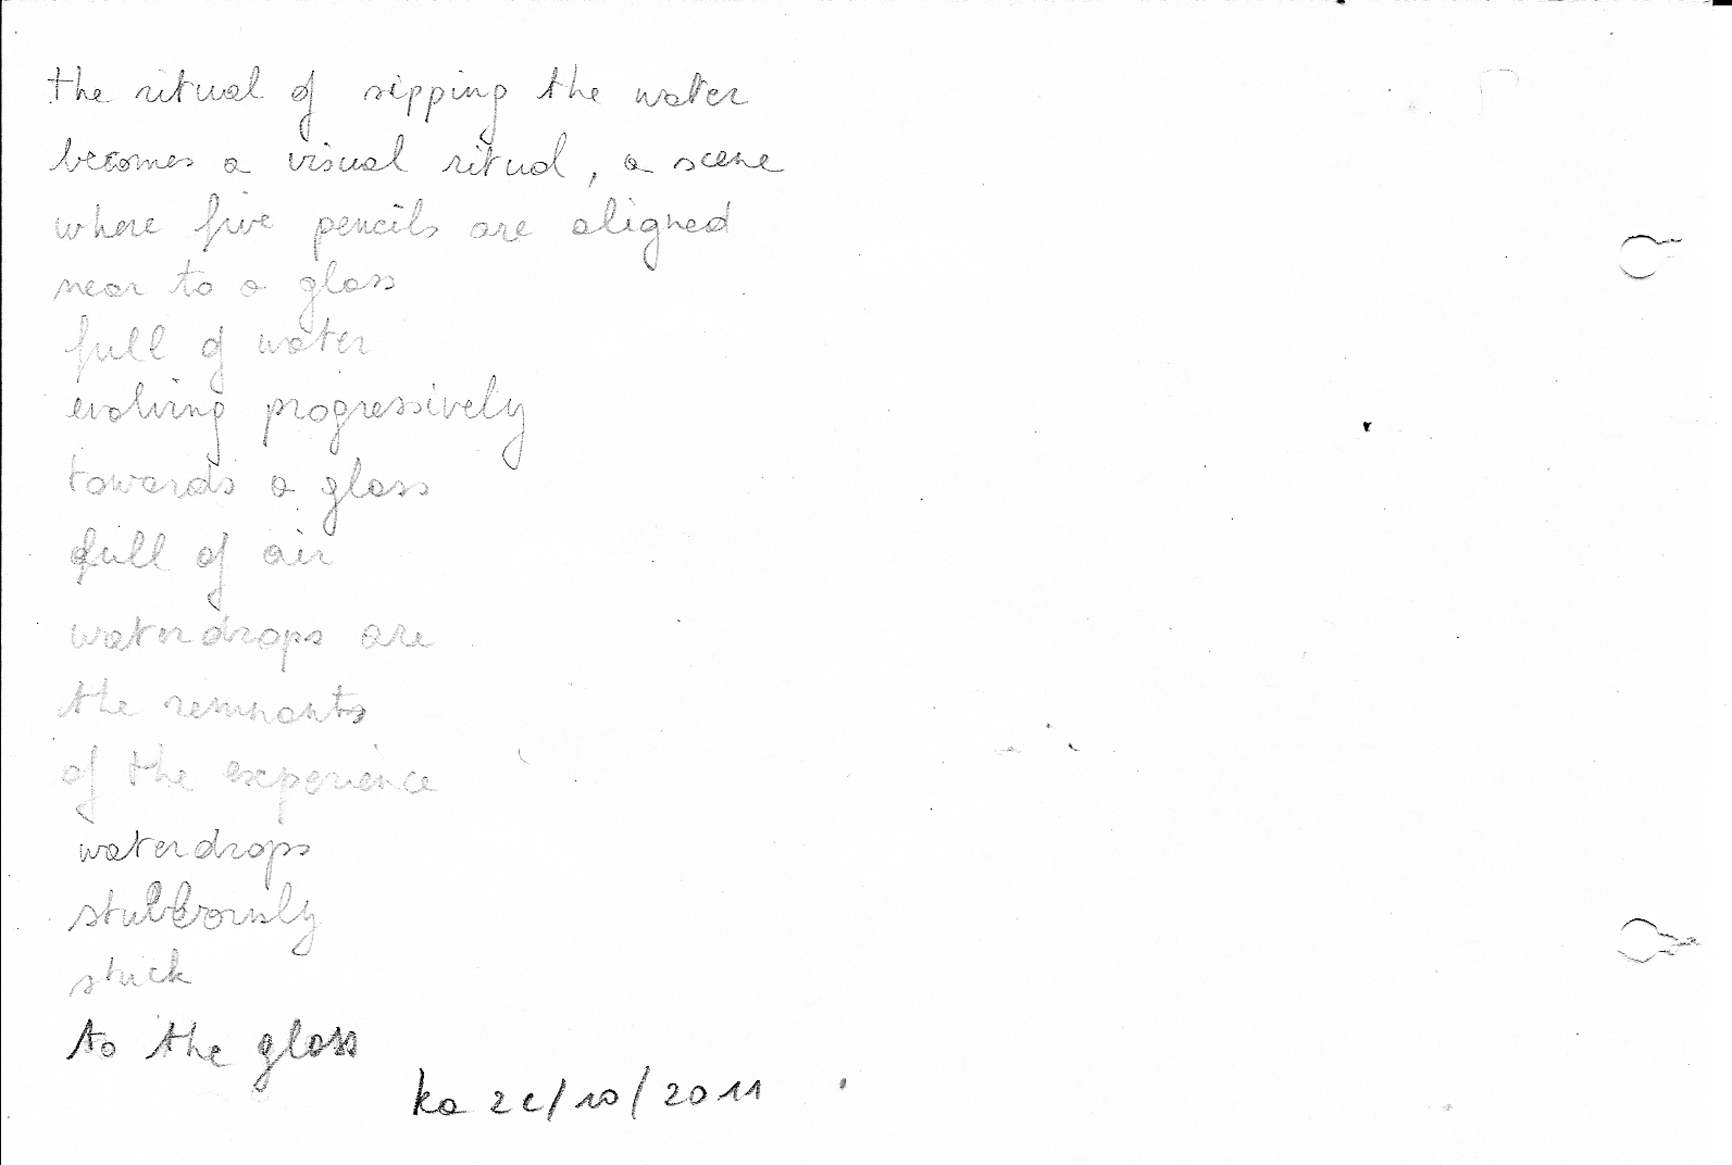 the ritual of sipping the water
becomes a visual ritual, a scene
where five pencils are aligned
near to a glass
full of water
evolving progressively
towards a glass
full of air
waterdrops are
the remnants
of the experience
waterdrops
stubbornly
stick
to the glass
ka /10/2011